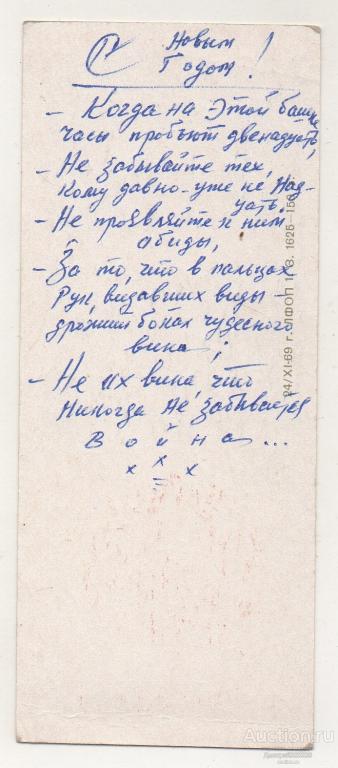 С Новым
Годом!
- Когда на этой башне
часы пробьют двенадцать,
- Не забывайте тех,
кому давно-уже не Над-
цать.
- Не проявляйте к ним
абиды,
- За то, что в пальцах
Рук, видавших виды -
дрожит бокал чудесного
вина;
- Не их вина, что
Никогда Не забывается
Война...
х х х
24/XI-69 г. ЛФОП
Auction.ru